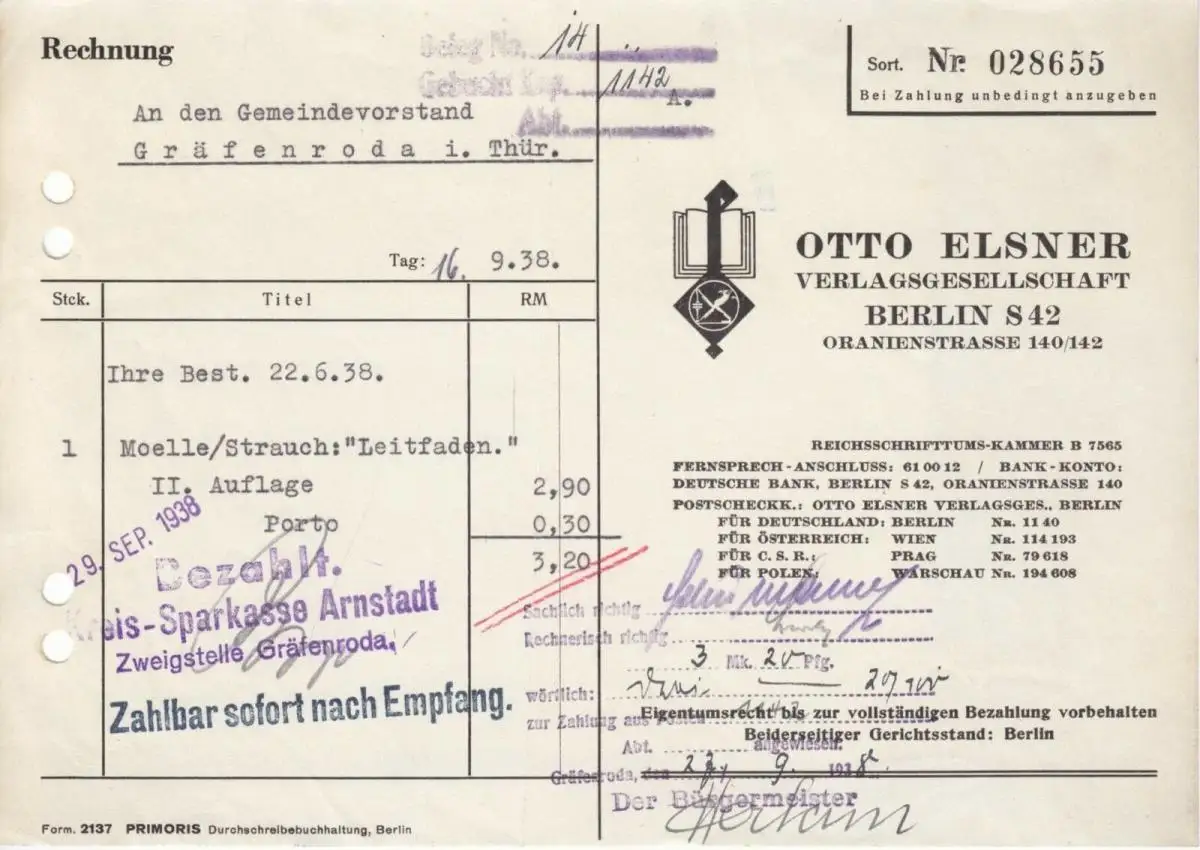 Rechnung
Beleg No. 14
Gebucht Kap. 1142
A.
Abt.
An den Gemeindevorstand
Gräfenroda i. Thür.
Sort. Nr. 028655
Bei Zahlung unbedingt anzugeben
Tag: 16. 9.38.
OTTO ELSNER
VERLAGSGESELLSCHAFT
BERLIN S 42
ORANIENSTRASSE 140/142
Stck. Titel RM
Ihre Best. 22.6.38.
1 Moelle/Strauch:"Leitfaden."
II. Auflage 2,90
Porto 0,30
3,20
29. SEP. 1938
Bezahlt.
Kreis-Sparkasse Arnstadt
Zweigstelle Gräfenroda.
Zahlbar sofort nach Empfang.
REICHSSCHRIFTTUMS-KAMMER B 7565
FERNSPRECH-ANSCHLUSS: 61 00 12 / BANK-KONTO:
DEUTSCHE BANK, BERLIN S 42, ORANIENSTRASSE 140
POSTSCHECKK.: OTTO ELSNER VERLAGSGES., BERLIN
FÜR DEUTSCHLAND: BERLIN NR. 11 40
FÜR ÖSTERREICH: WIEN NR. 114 193
FÜR C. S. R.: PRAG NR. 79 618
FÜR POLEN: WARSCHAU NR. 194 608
Sachlich richtig
Rechnerisch richtig
3 Mk. 20 Pfg.
wörtlich: Drei 20/100
zur Zahlung aus
Eigentumsrecht bis zur vollständigen Bezahlung vorbehalten
Beiderseitiger Gerichtsstand: Berlin
Abt. angewiesen.
Gräfenroda, den 27. 9. 1938.
Der Bürgermeister
Form. 2137 PRIMORIS Durchschreibebuchhaltung, Berlin